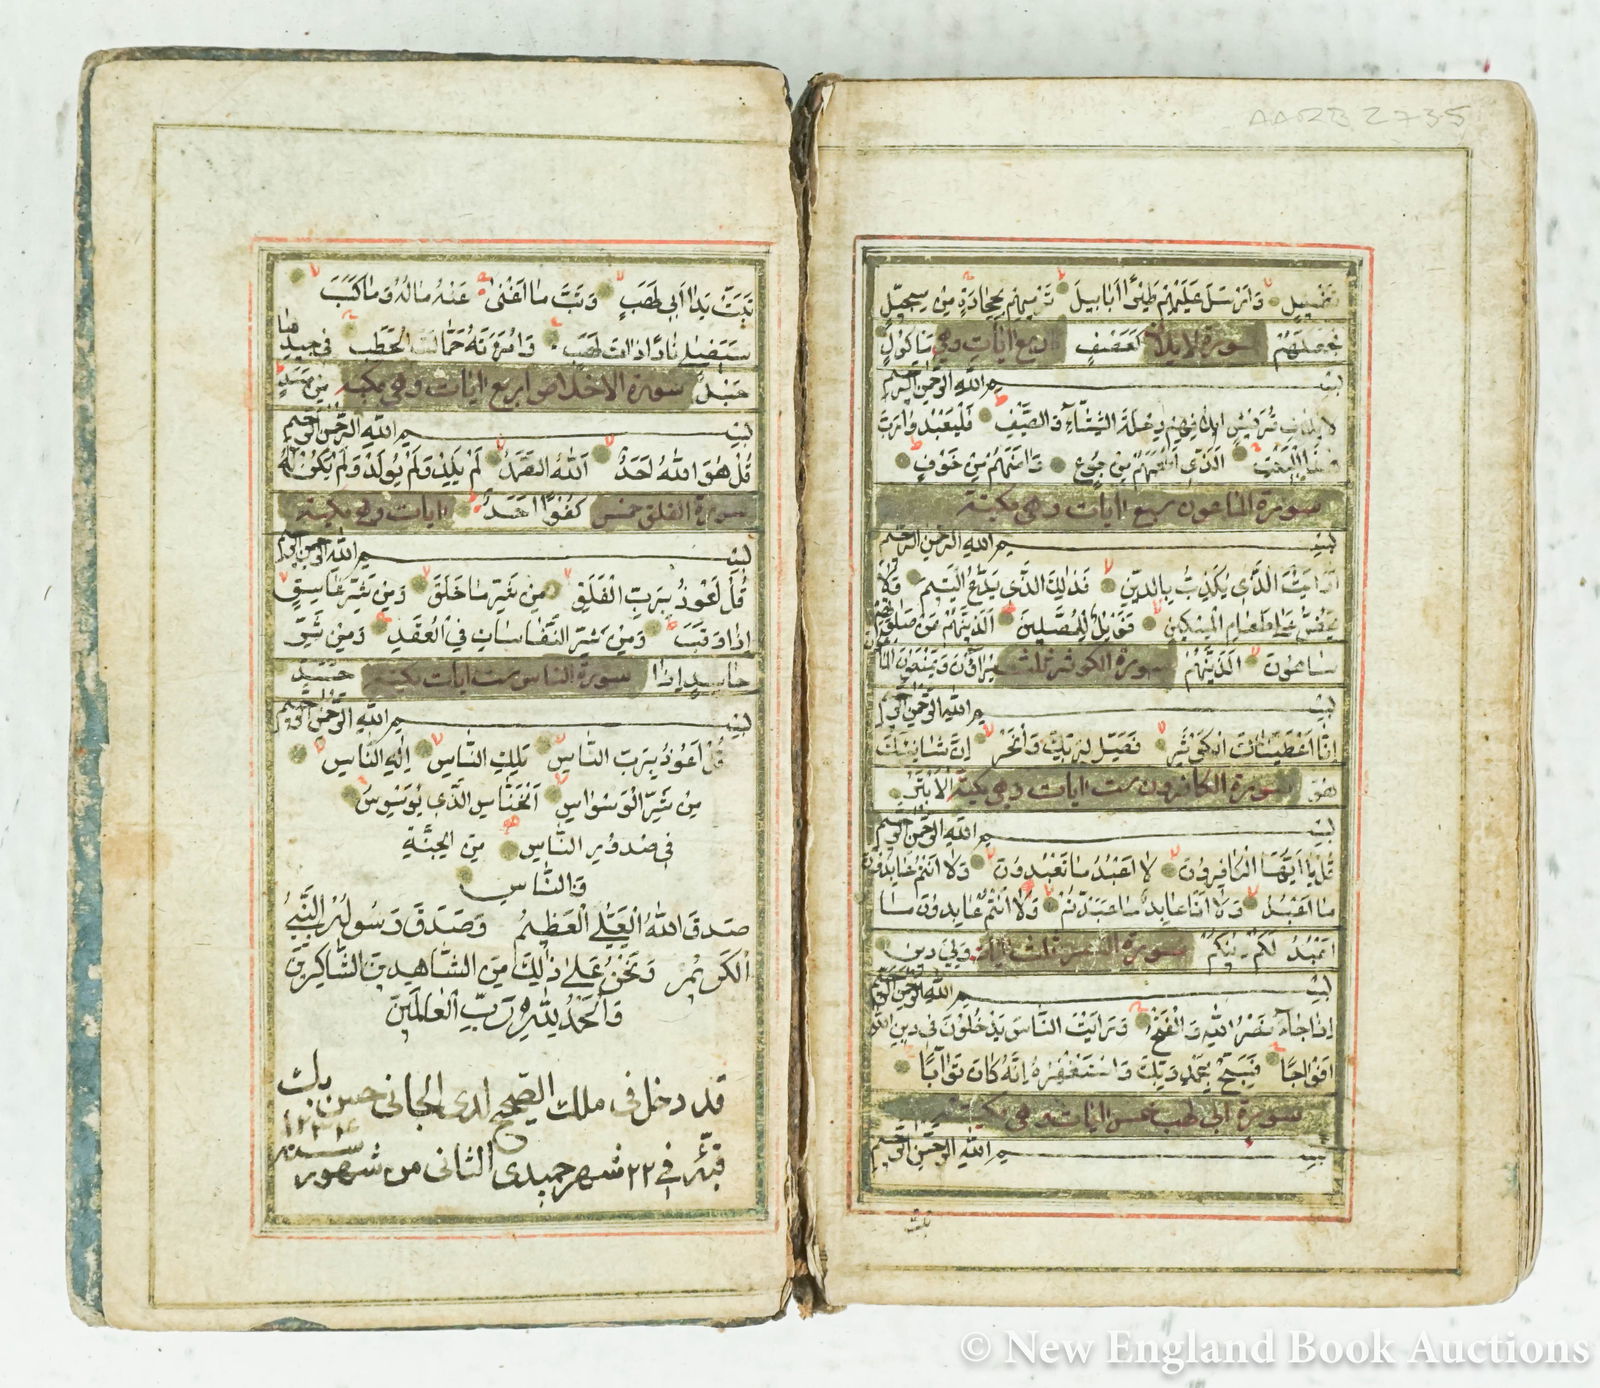 AARB 2735
تضليل وارسل عليهم طيرًا ابابيل ترميهم بحجارة من سجيل
فجعلهم كعصف ماكول سورة لايلاف اربع ايات وهي
بسم الله الرحمن الرحيم
لايلاف قريش ايلافهم رحلة الشتاء والصيف فليعبدوا رب
هذا البيت الذي اطعمهم من جوع وامنهم من خوف
سورة الماعون سبع ايات وهي مكية
بسم الله الرحمن الرحيم
ارايت الذي يكذب بالدين فذلك الذي يدع اليتيم ولا
يحض على طعام المسكين فويل للمصلين الذينهم عن صلوتهم
ساهون الذينهم يراؤن ويمنعون الماعون سورة الكوثر ثلث
بسم الله الرحمن الرحيم
انا اعطيناك الكوثر فصل لربك وانحر ان شانئك
هو الابتر سورة الكافرون ست ايات وهي مكية
بسم الله الرحمن الرحيم
قل يا ايها الكافرون لا اعبد ما تعبدون ولا انتم عابدون
ما اعبد ولا انا عابد ما عبدتم ولا انتم عابدون ما
اعبد لكم دينكم ولي دين سورة النصر ثلث ايات
بسم الله الرحمن الرحيم
اذا جاء نصر الله والفتح ورايت الناس يدخلون في دين الله
افواجًا فسبح بحمد ربك واستغفره انه كان توابًا
سورة ابي لهب خمس ايات وهي مكية
بسم الله الرحمن الرحيم
تبت
تبت يدا ابي لهب وتب ما اغنى عنه ماله وما كسب
سيصلى نارًا ذات لهب وامرته حمالت الحطب في جيدها
حبل من مسد سورة الاخلاص اربع ايات وهي مكية
بسم الله الرحمن الرحيم
قل هو الله احد الله الصمد لم يلد ولم يولد ولم يكن له
كفوًا احد سورة الفلق خمس ايات وهي مكية
بسم الله الرحمن الرحيم
قل اعوذ برب الفلق من شر ما خلق ومن شر غاسق
اذا وقب ومن شر النفاسات في العقد ومن شر
حاسد اذا حسد سورة الناس ست ايات مكية
بسم الله الرحمن الرحيم
قل اعوذ برب الناس ملك الناس اله الناس
من شر الوسواس الخناس الذي يوسوس
في صدور الناس من الجنة
والناس
صدق الله العلي العظيم وصدق رسوله النبي
الكريم ونحن على ذلك من الشاهدين الشاكرين
والحمد لله رب العالمين
قد دخل في ملك الصحيح لدى الجاني حسن بك
في ٢٢ شهر جميدى الثاني من شهور سنه
© New England Book Auctions